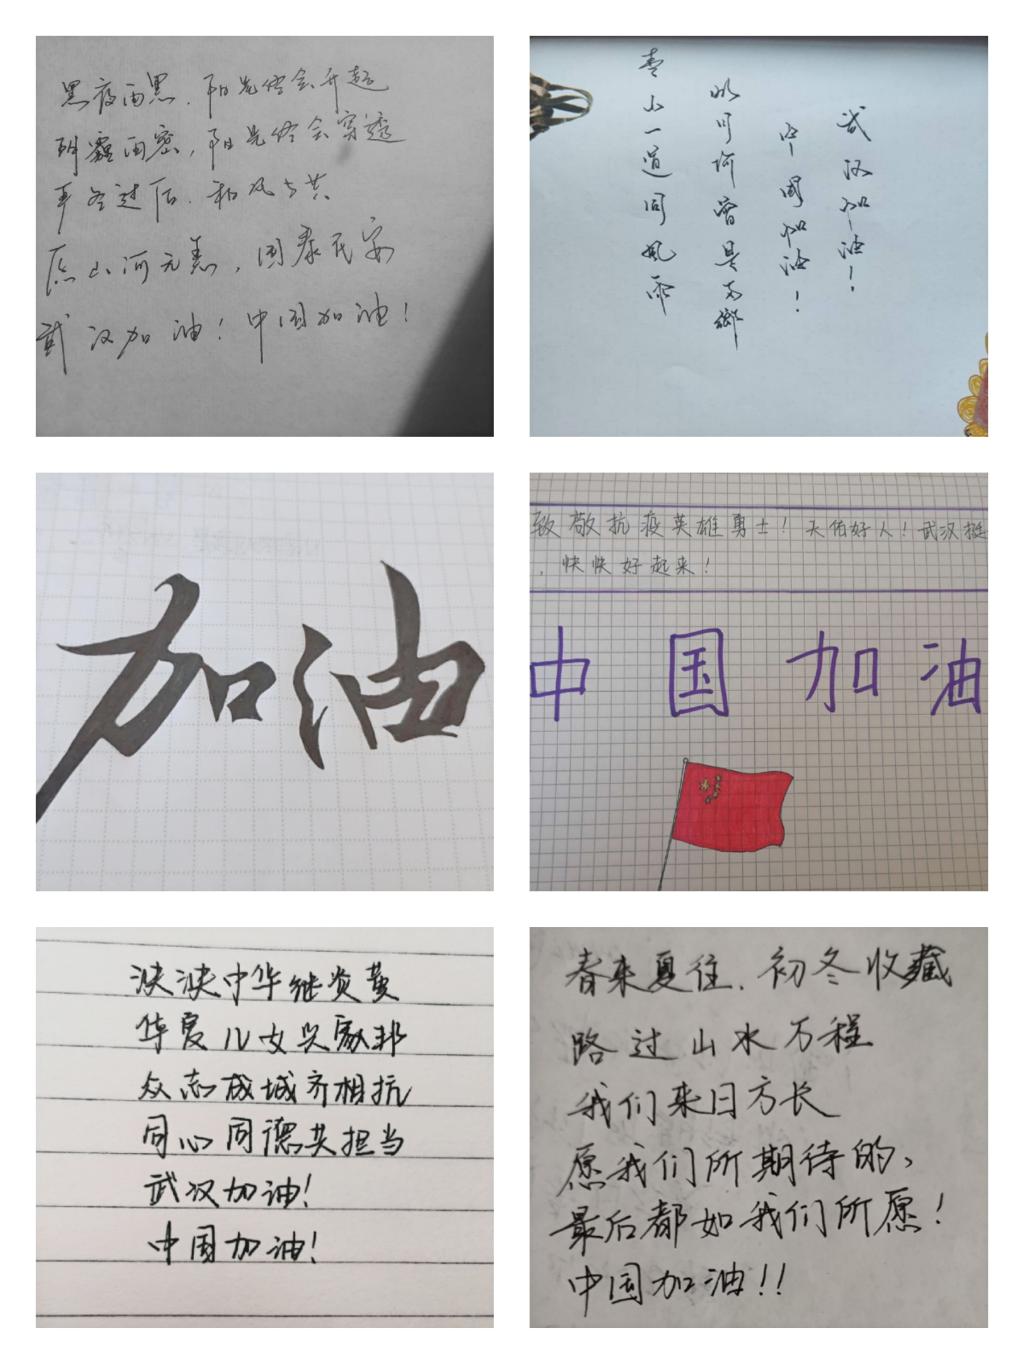 黑夜再黑，阳光终会升起
阴霾再密，阳光终会穿透
冬过后，和风与共
愿山河无恙，国泰民安
武汉加油！中国加油！
青山一道同風雨
明月何曾是两鄉
中国加油！
武汉加油！
加油
致敬抗疫英雄勇士！天佑好人！武汉挺
，快快好起来！
中国加油
泱泱中华继炎黄
华夏儿女兴家邦
众志成城齐相抗
同心同德共担当
武汉加油！
中国加油！
春来夏往，初冬收藏
路过山水万程
我们来日方长
愿我们所期待的，
最后都如我们所愿！
中国加油！！